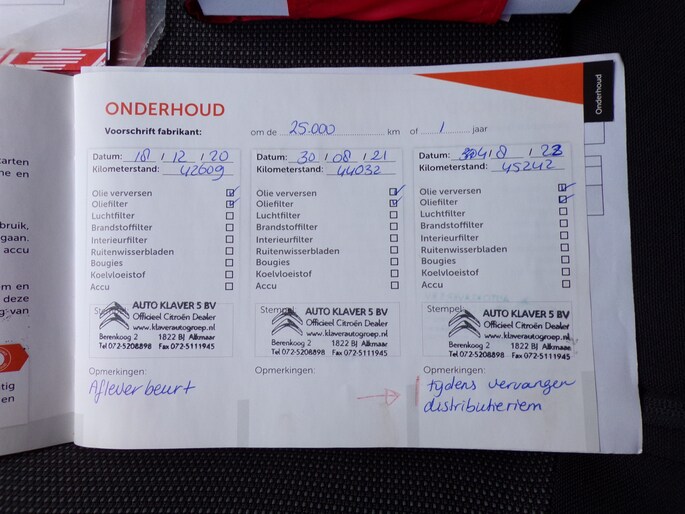 ONDERHOUD
Voorschrift fabrikant: om de 25.000 km of 1 jaar
Onderhoud
Datum: 18 / 12 / 20
Kilometerstand: 42609
Olie verversen
Oliefilter
Luchtfilter
Brandstoffilter
Interieurfilter
Ruitenwisserbladen
Bougies
Koelvloeistof
Accu
Stempel
AUTO KLAVER 5 BV
Officieel Citroën Dealer
www.klaverautogroep.nl
Berenkoog 2 1822 BJ Alkmaar
Tel 072-5208898 Fax 072-5111945
Opmerkingen:
Afleverbeurt
Datum: 30 / 08 / 21
Kilometerstand: 44032
Olie verversen
Oliefilter
Luchtfilter
Brandstoffilter
Interieurfilter
Ruitenwisserbladen
Bougies
Koelvloeistof
Accu
Stempel
AUTO KLAVER 5 BV
Officieel Citroën Dealer
www.klaverautogroep.nl
Berenkoog 2 1822 BJ Alkmaar
Tel 072-5208898 Fax 072-5111945
Opmerkingen:
Datum: / 8 /
Kilometerstand: 45242
Olie verversen
Oliefilter
Luchtfilter
Brandstoffilter
Interieurfilter
Ruitenwisserbladen
Bougies
Koelvloeistof
Accu
Stempel
AUTO KLAVER 5 BV
Officieel Citroën Dealer
www.klaverautogroep.nl
Berenkoog 2 1822 BJ Alkmaar
Tel 072-5208898 Fax 072-5111945
Opmerkingen:
tijdens vervangen
distributieriem